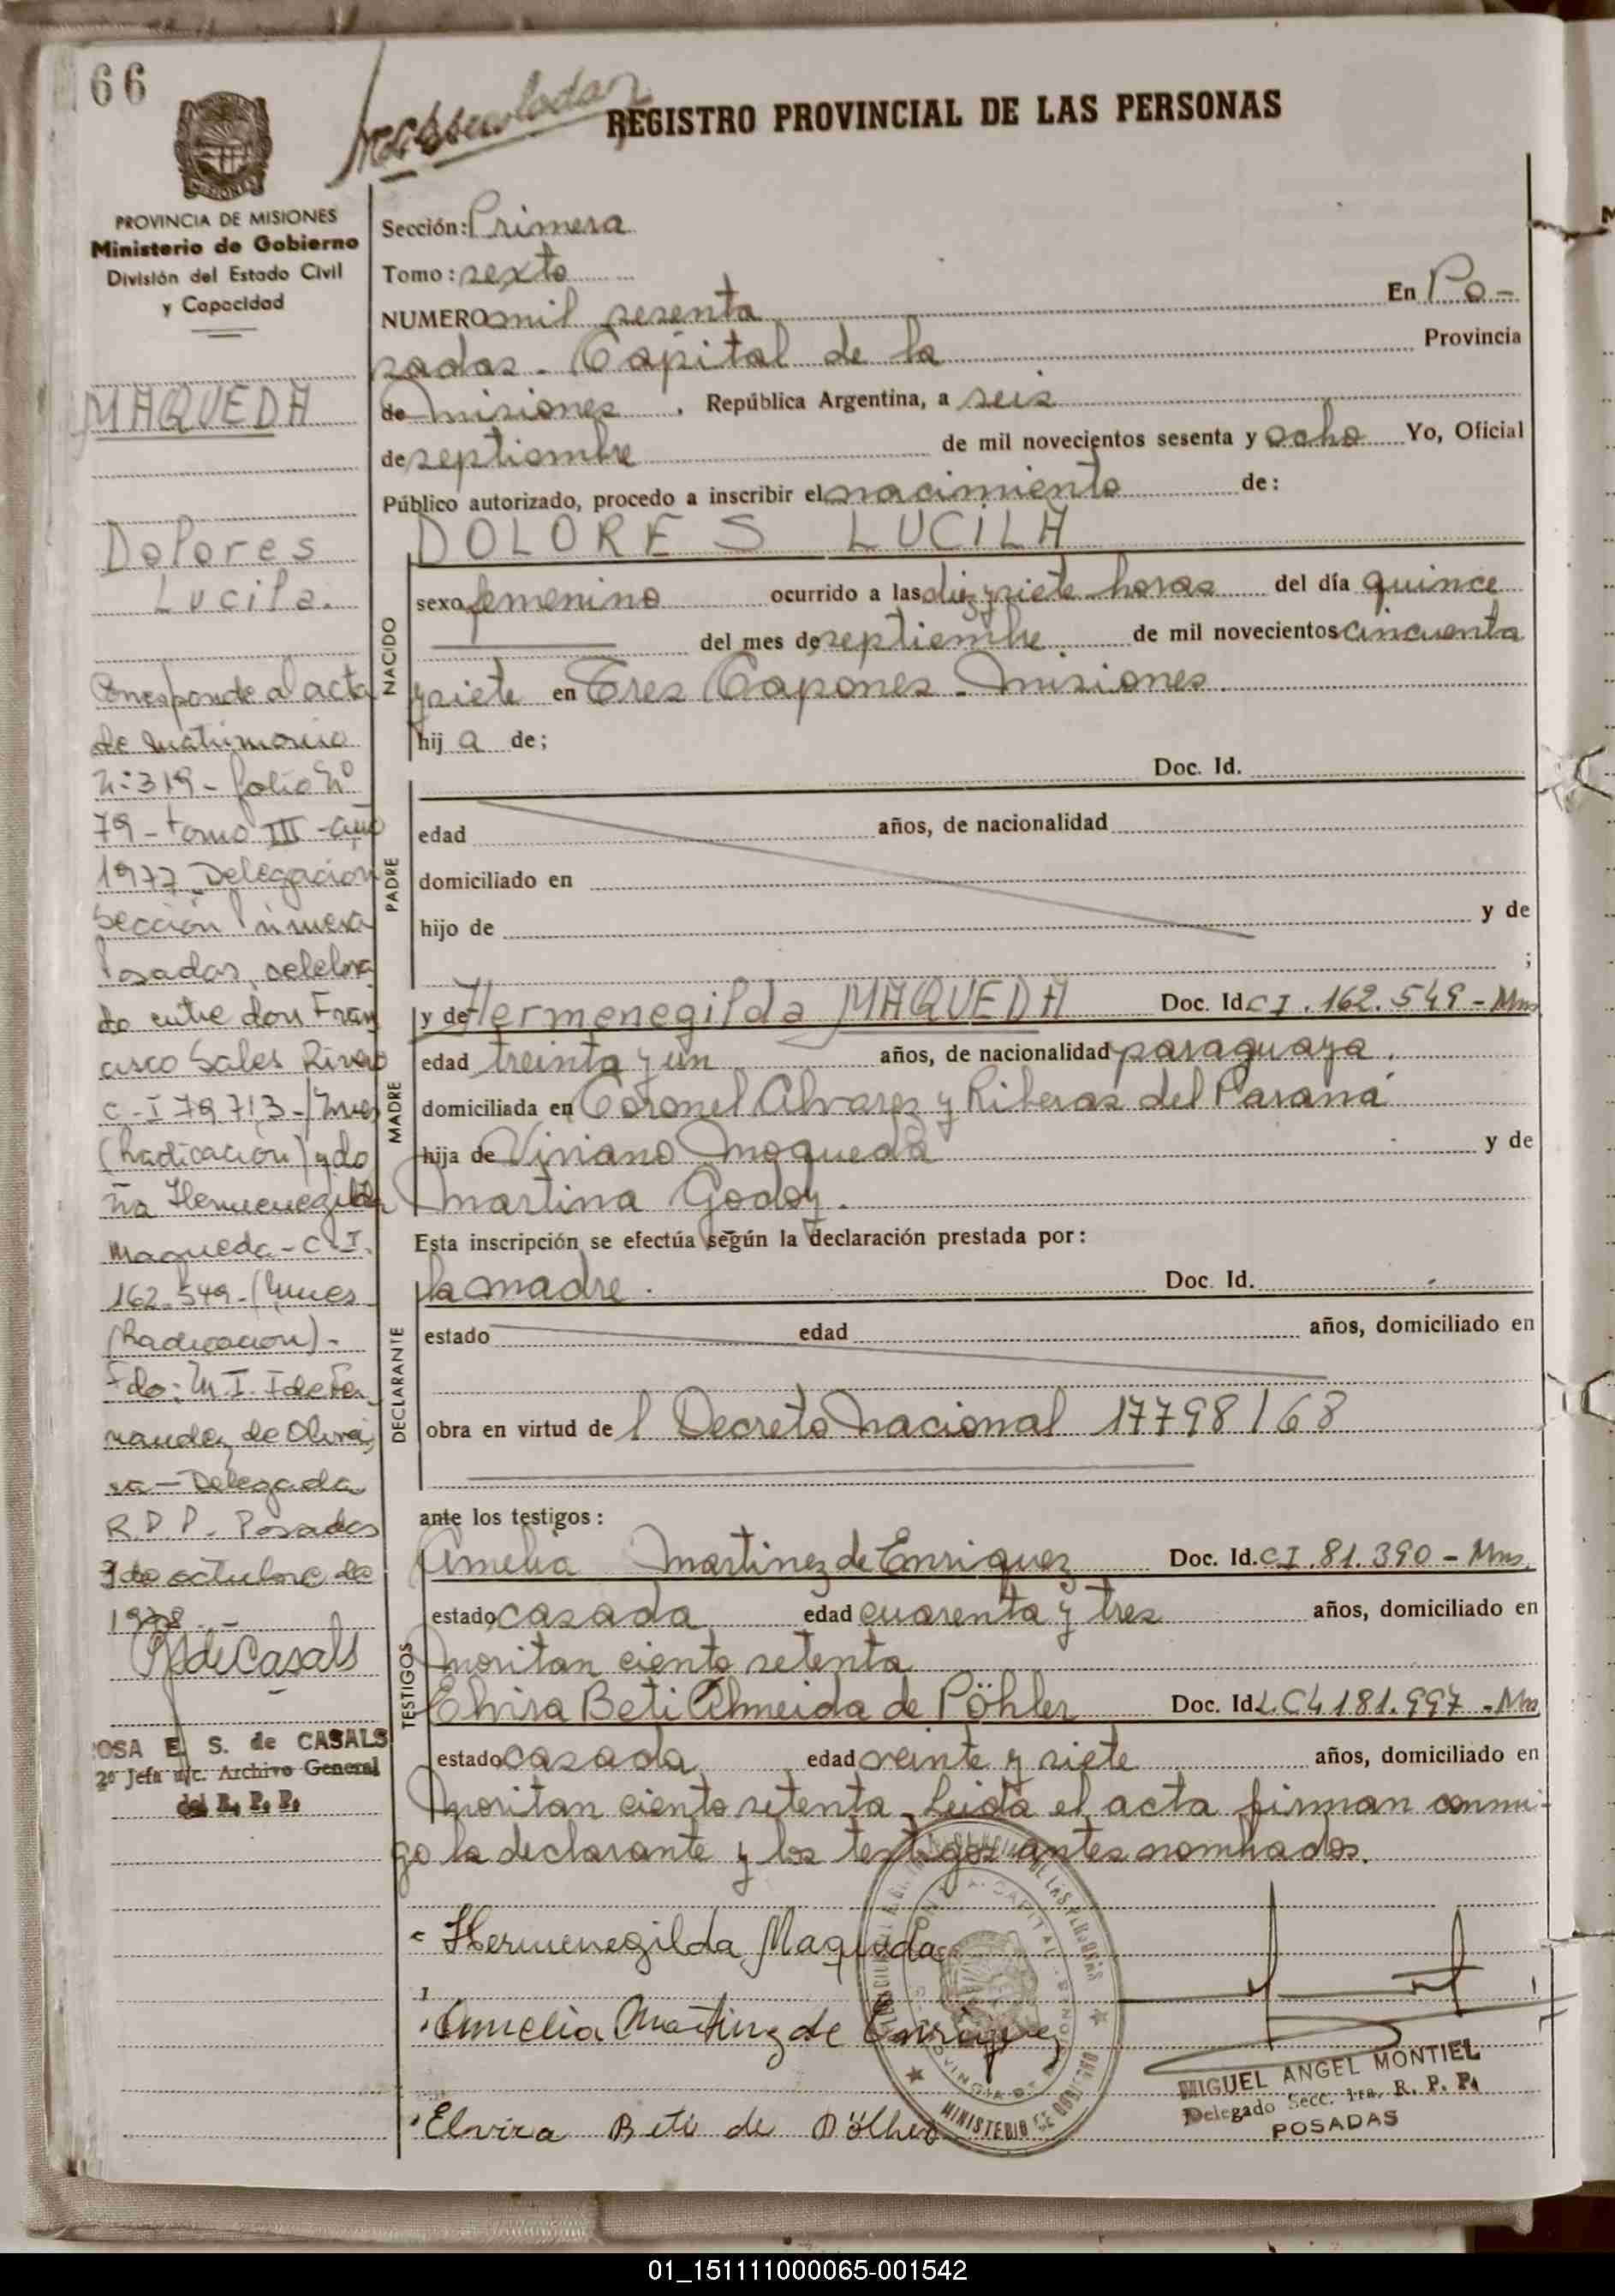 66
REGISTRO PROVINCIAL DE LAS PERSONAS
PROVINCIA DE MISIONES
Ministerio de Gobierno
División del Estado Civil
y Capacidad
MAQUEDA
Dolores
Lucila.
Corresponde al acta
de matrimonio
Nº 319 - folio Nº
79 - tomo III - año
1977 Delegación
Sección Primera
Posadas, celebra
do entre don Fran
cisco Sales Rivero
C-I 79713 - Mnes
(Radicación) y do
ña Hermenegilda
Maqueda - C.I.
162.549 - Mnes
(Radicación) -
Fdo: M. I. I de Fer
nandez de Olivei
ra - Delegada
R.P.P. Posadas
de octubre de
1978 -
RSdeCasals
OSA E. S. de CASALS
2º Jefa a/c. Archivo General
del R. P. P.
Sección: Primera
Tomo: sexto
NUMERO mil sesenta En Po-
sadas - Capital de la Provincia
de misiones. República Argentina, a seis
de septiembre de mil novecientos sesenta y ocho Yo, Oficial
Público autorizado, procedo a inscribir el nacimiento de:
NACIDO
DOLORES LUCILA
sexo femenino ocurrido a las diez y siete horas del día quince
del mes de septiembre de mil novecientos cincuenta
y siete en Tres Capones - misiones.
hij a de;
PADRE
Doc. Id.
edad años, de nacionalidad
domiciliado en
hijo de y de
;
MADRE
y de Hermenegilda MAQUEDA Doc. Id C I. 162.549 - Mns
edad treinta y un años, de nacionalidad paraguaya.
domiciliada en Coronel Alvarez y Riberas del Paraná
hija de Viviano Moqueda y de
Martina Godoy.
Esta inscripción se efectúa según la declaración prestada por:
DECLARANTE
la madre. Doc. Id.
estado edad años, domiciliado en
obra en virtud de l Decreto nacional 17798/68
ante los testigos:
TESTIGOS
Amelia Martinez de Enriquez Doc. Id. C I. 81.390 - Mns.
estado casada edad cuarenta y tres años, domiciliado en
Moritan ciento setenta
Elvira Beti Almeida de Pöhler Doc. Id L.C 4.181.997 - Mns
estado casada edad veinte y siete años, domiciliado en
Moritan ciento setenta. Leida el acta firman conmi-
go la declarante y los testigos antes nombrados.
Hermenegilda Maqueda
Amelia Martinez de Enriquez
Elvira Beti de Pölher
MINISTERIO DE GOBIERNO
MIGUEL ANGEL MONTIEL
Delegado Secc. 1ra. R. P. P.
POSADAS
01_151111000065-001542